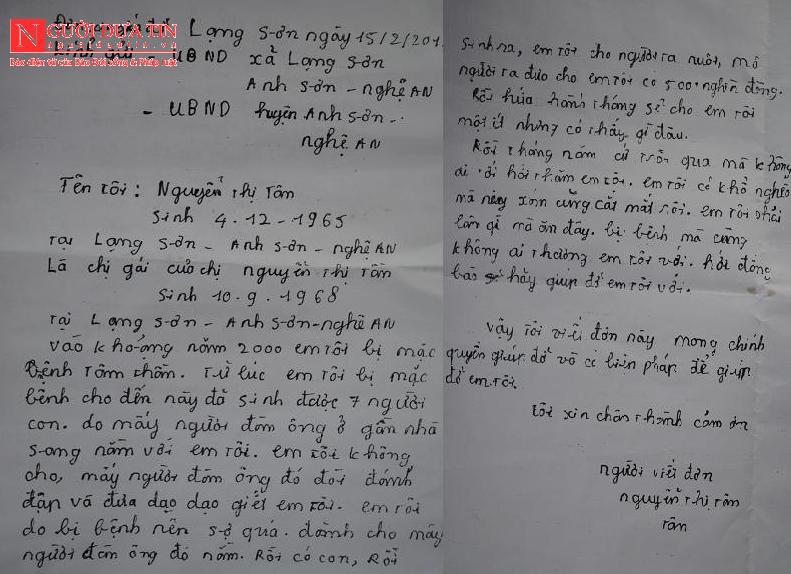 NGƯỜI ĐƯA TIN
Nguoiduatin.vn
Báo điện tử của Báo Đời sống & Pháp luật
Lạng Sơn ngày 15/2/201
UBND xã Lạng Sơn
Anh Sơn - nghệ AN
- UBND huyện Anh Sơn -
nghệ AN
Tên tôi: Nguyễn Thị Tâm
Sinh 4.12-1965
Tại Lạng Sơn - Anh Sơn - nghệ AN
Là chị gái của chị nguyễn Thị Tầm
Sinh 10.9.1968
Tại Lạng Sơn - Anh Sơn - nghệ AN
vào khoảng năm 2000 em tôi bị mặc
Bệnh Tâm thần. Từ lúc em tôi bị mắc
bệnh cho đến nay đã sinh được 7 người
con. do mấy người đàn ông ở gần nhà
sang nằm với em tôi. em tôi không
cho, mấy người đàn ông đó đòi đánh
đập và đưa dao dạo giết em tôi. em tôi
do bị bệnh nên sợ quá. đành cho mấy
người đàn ông đó nằm. Rồi có con, Rồi
sinh ra, em tôi cho người ta nuôi, mỗ
người ta đưa cho em tôi có 500 nghìn đồng.
Rồi hứa hành tháng sẽ cho em tôi
một ít nhưng có thấy gì đâu.
Rồi tháng năm cứ trôi qua mà không
ai tới hỏi thăm em tôi. em tôi có khổ nghèo
mà xóm cũng cắt mất rồi. em tôi phải
làm gì mà ăn đây. bị bệnh mà cũng
không ai thương em tôi với. hỡi đồng
bào hãy giúp đỡ em tôi với.
vậy tôi viết đơn này mong chính
quyền giúp đỡ và có biện pháp để giúp
đỡ em tôi.
tôi xin chân thành cảm ơn
người viết đơn
nguyễn thị tâm
tâm